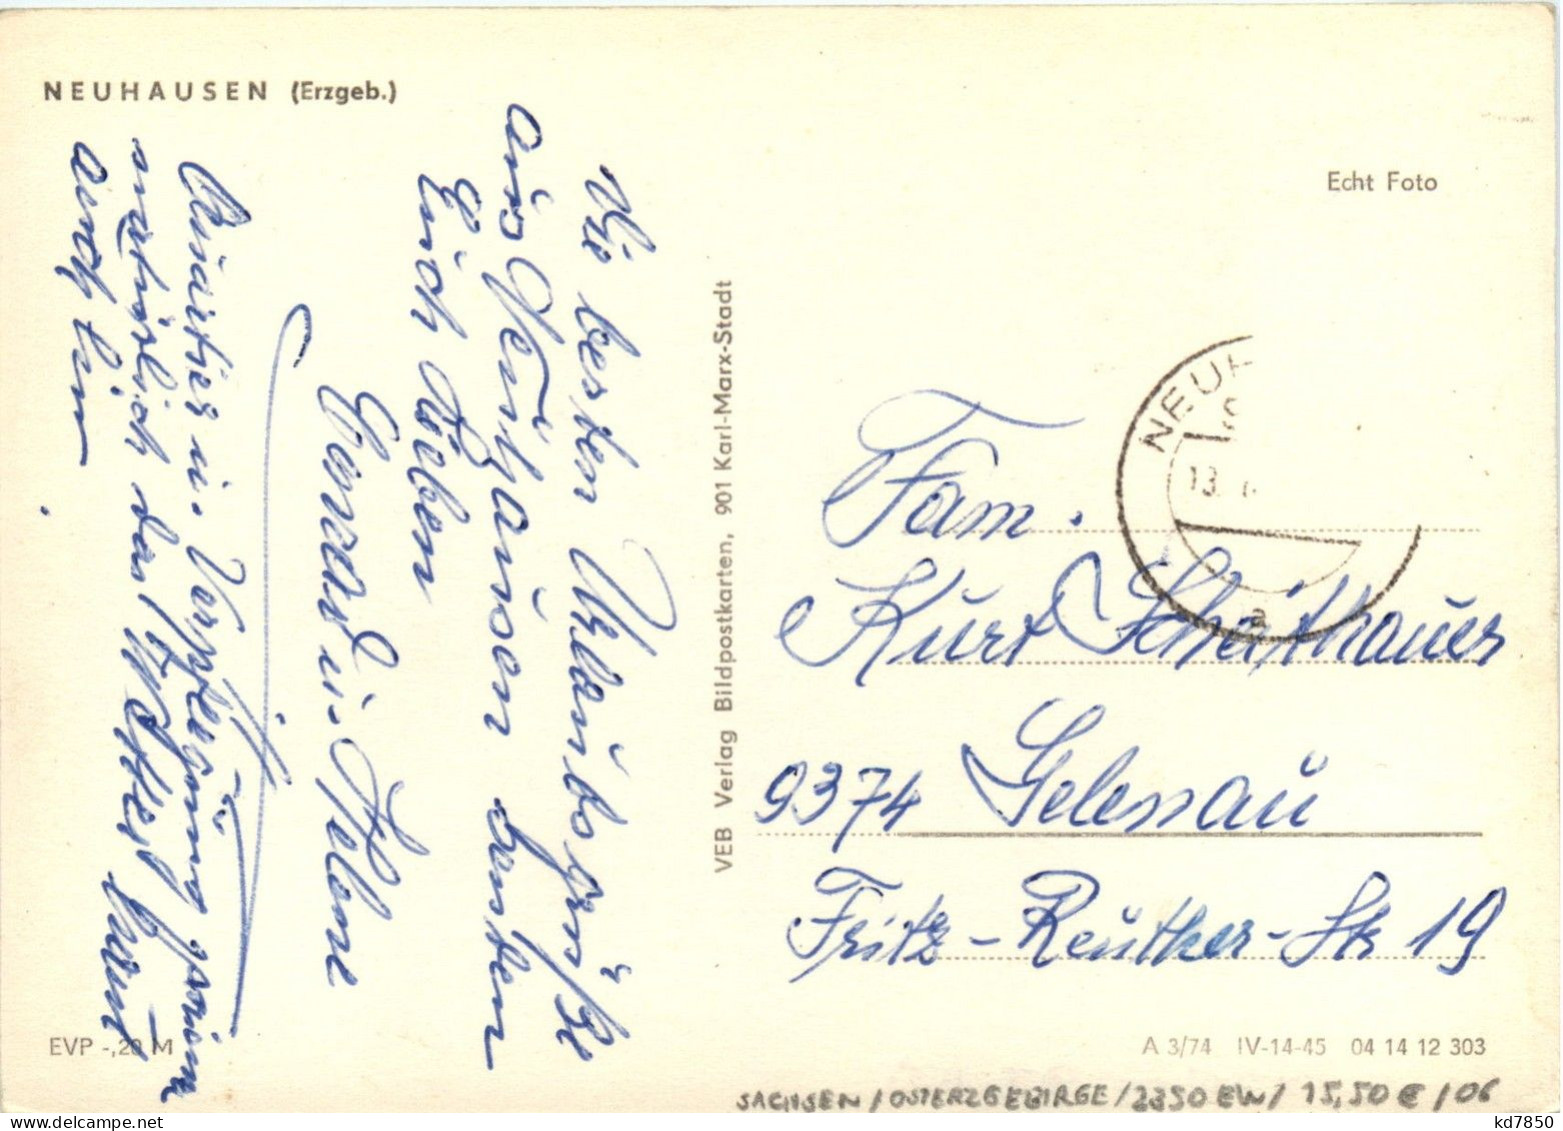 NEUHAUSEN (Erzgeb.)
Die besten Urlaubsgrüße
aus Neuhausen senden
Euch Lieben
u. Helene
Quartier u. Verpflegung prima
natürlich das Wetter
auch hin
VEB Verlag Bildpostkarten, 901 Karl-Marx-Stadt
Echt Foto
NEUH
13.
a
Fam.
Kurt Scheithauer
9374 Gelenau
Fritz-Reuther-Str 19
EVP -,20 M
A 3/74 IV-14-45 04 14 12 303
SACHSEN/OSTERZGEBIRGE/3350 EW/ 15,50 €/06
kd7850